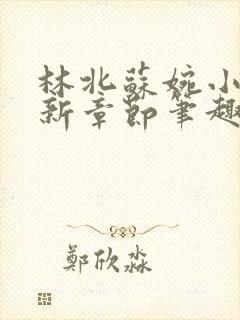 林北蘇婉小
新章節筆趣
鄭欣淼